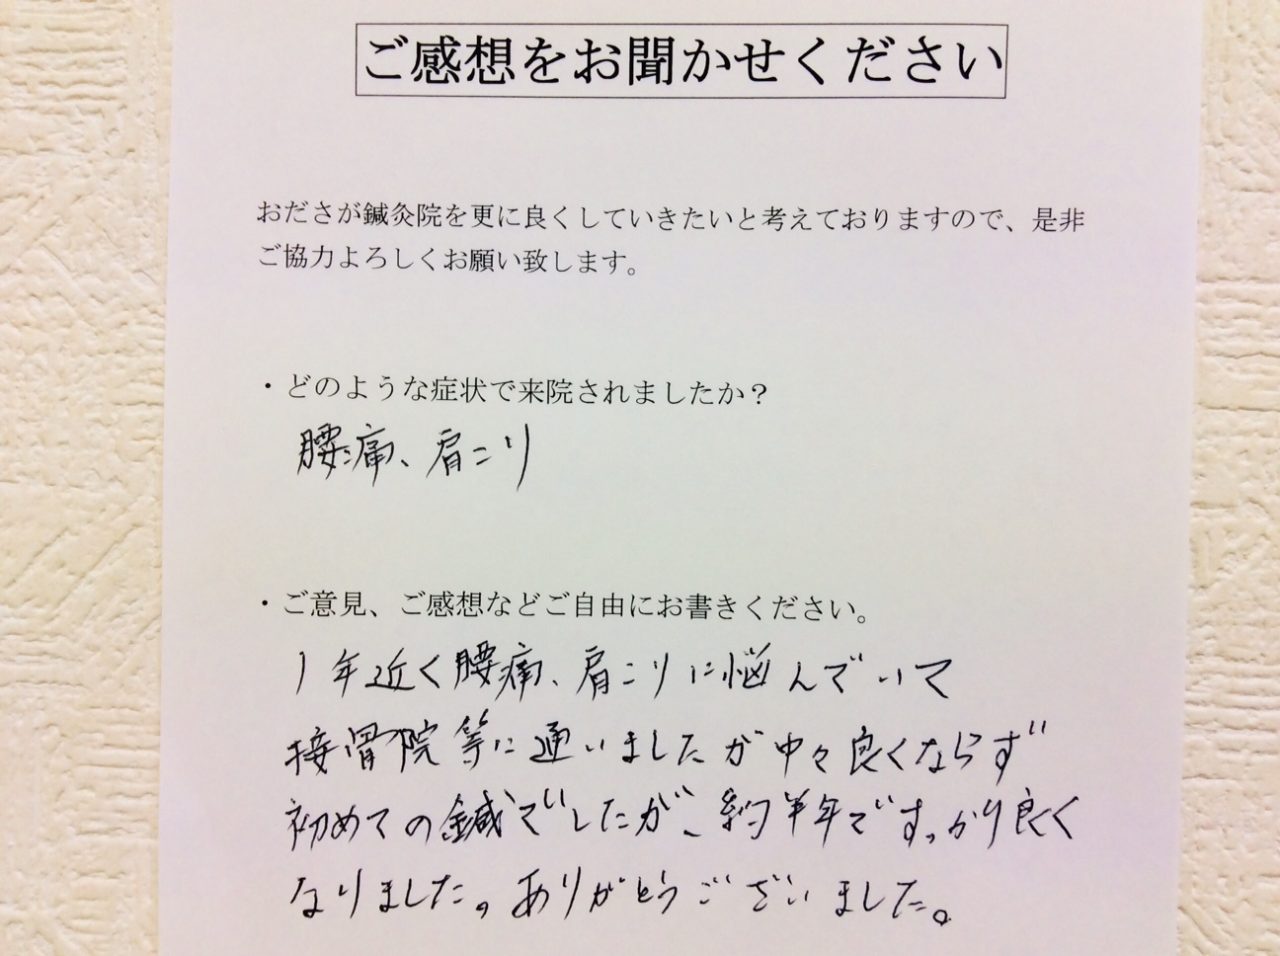 ご感想をお聞かせください
おださが鍼灸院を更に良くしていきたいと考えておりますので、是非
ご協力よろしくお願い致します。
・どのような症状で来院されましたか？
腰痛、肩こり
・ご意見、ご感想などご自由にお書きください。
1年近く腰痛、肩こりに悩んでいて
接骨院等に通いましたが中々良くならず
初めての鍼でしたが、約半年ですっかり良く
なりました。ありがとうございました。